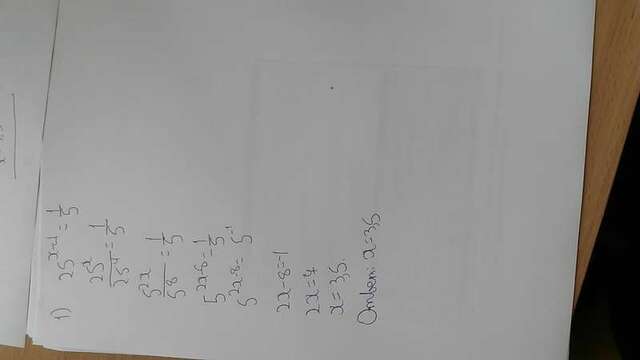 1) 25^{x-4} = 1/5
25^x/25^4 = 1/5
5^{2x}/5^8 = 1/5
5^{2x-8} = 1/5
5^{2x-8} = 5^{-1}
2x-8=-1
2x=7
x=3,5.
Ответ: x=3,5